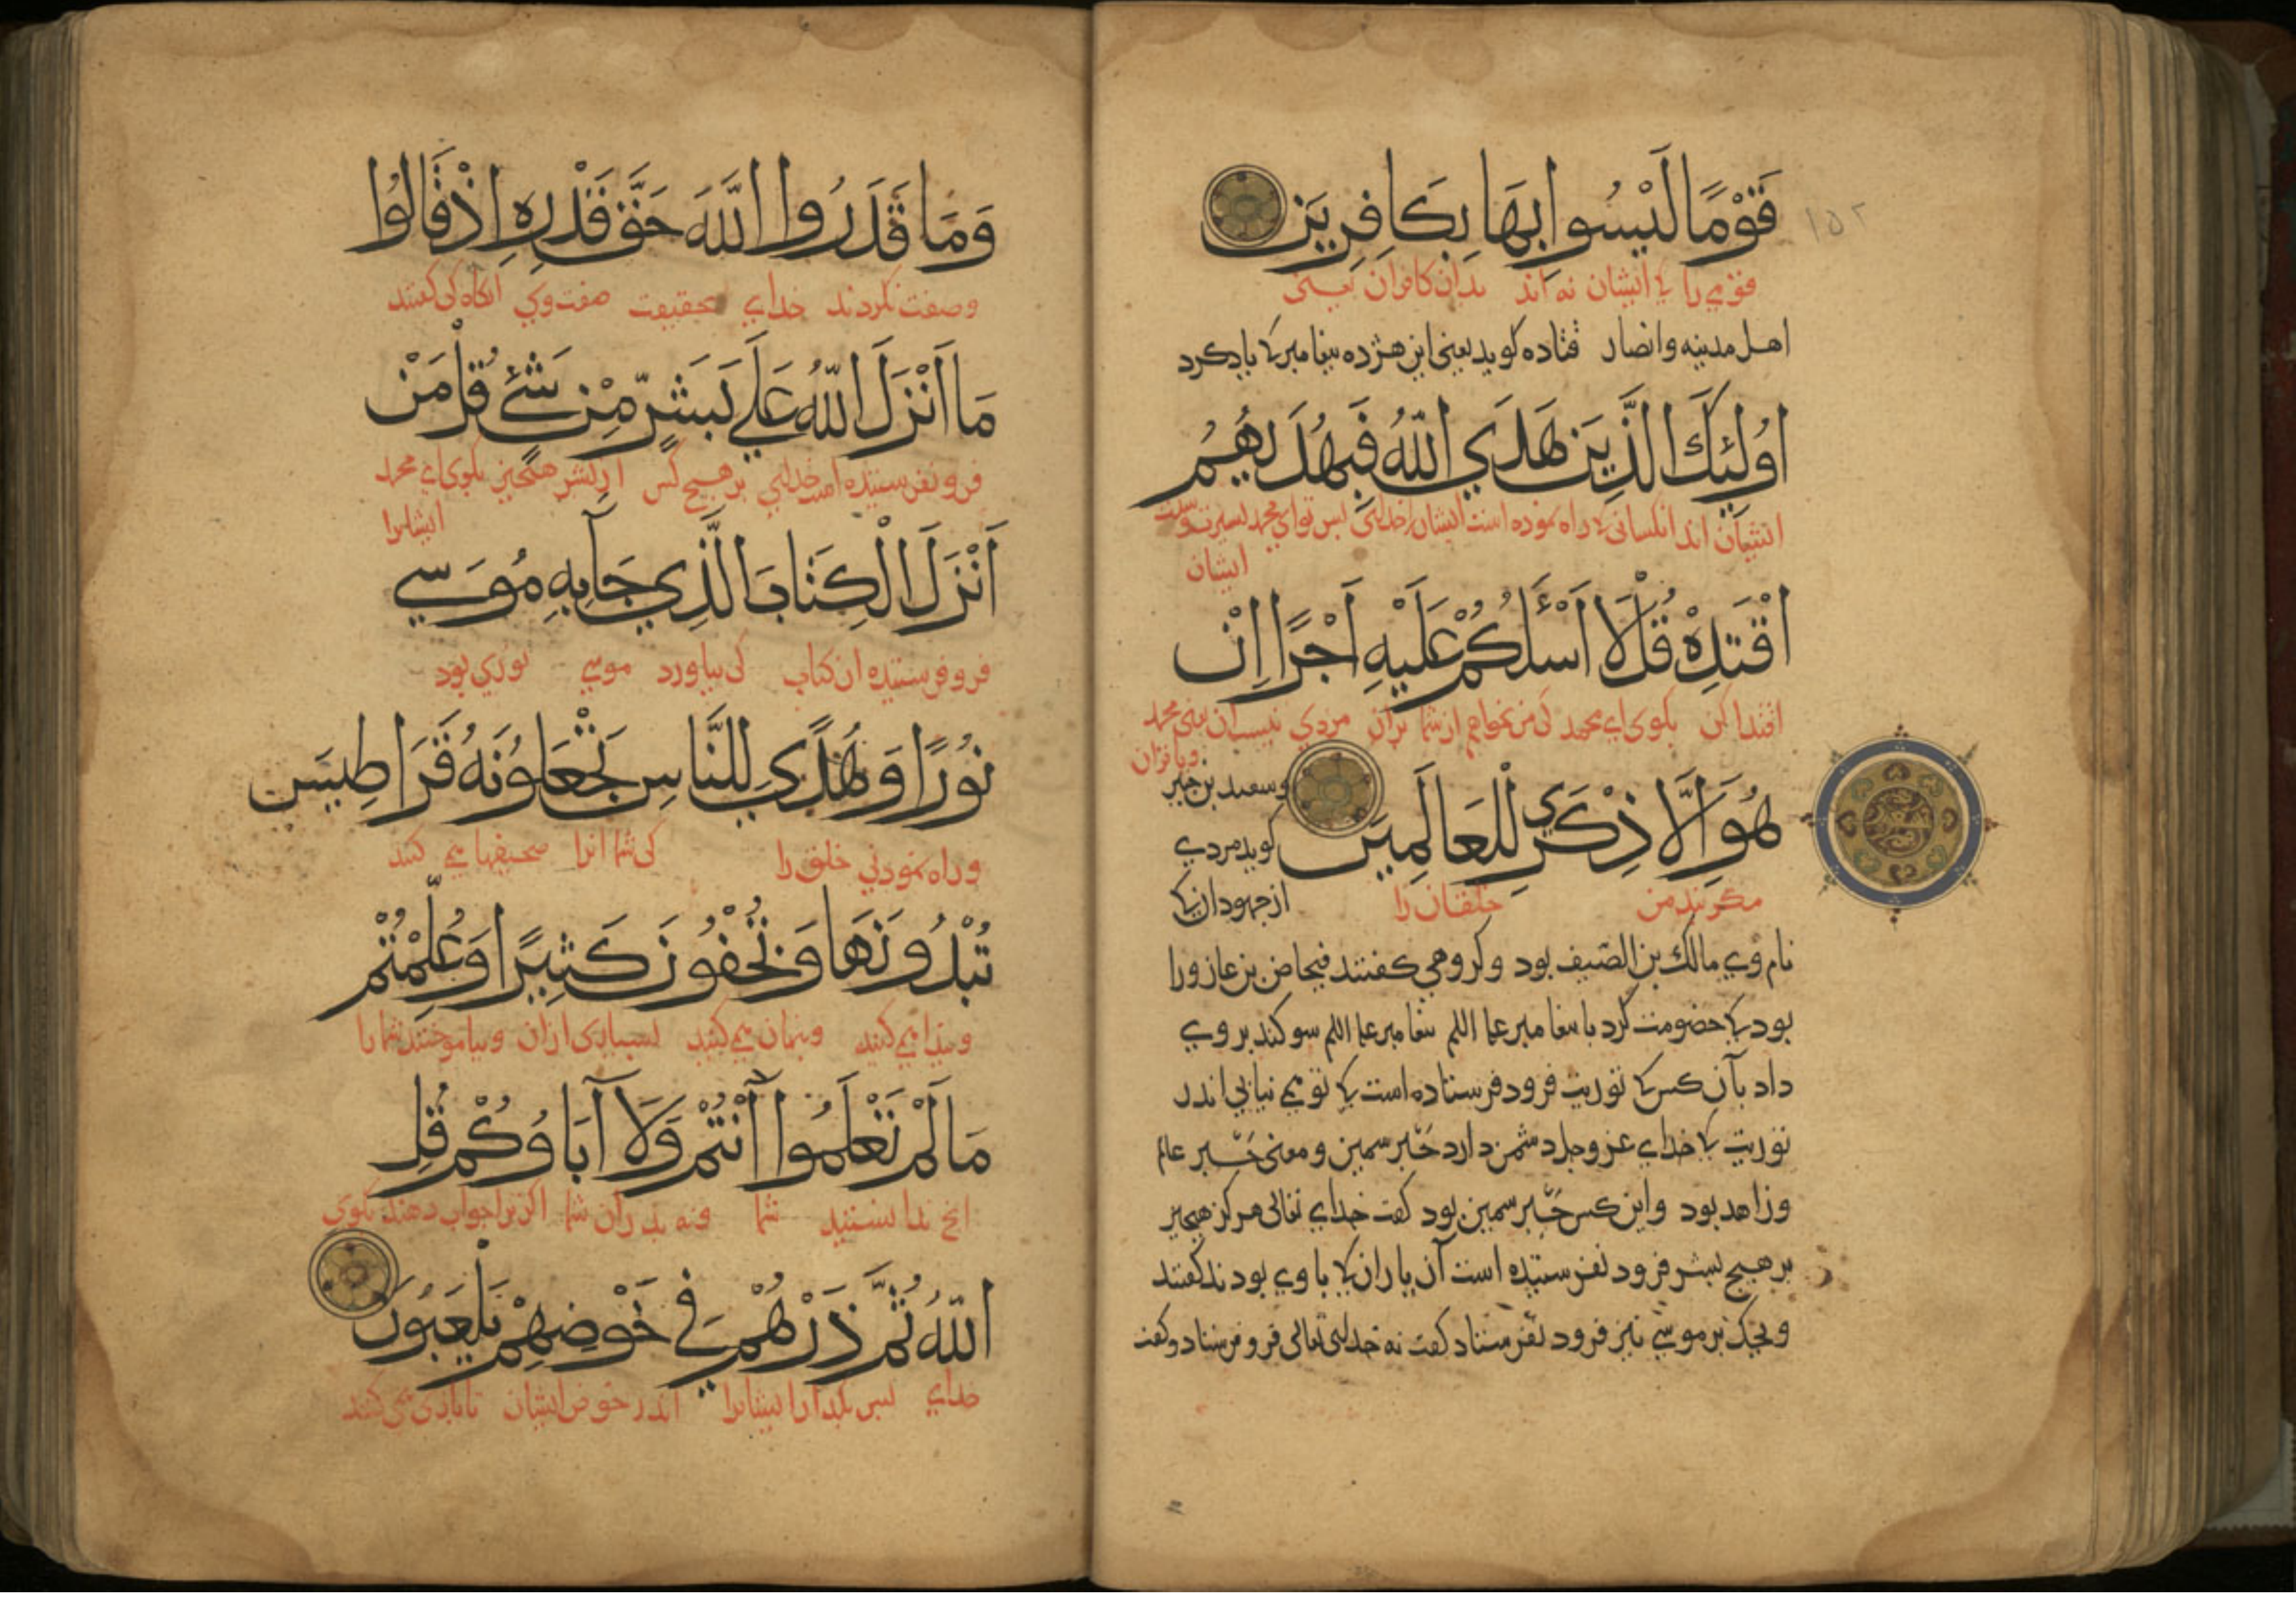 ۱۵۲
قَوْمًا لَيْسُوا بِهَا بِكَافِرِينَ
قومی را کی ایشان نه اند بدان کافران یعنی
اهل مدینه وانصار قتاده کوید یعنی این هژده بیغامبر کی یاد کرد
اُولٰئِكَ الَّذِينَ هَدَي اللّٰهُ فَبِهُدٰيهُمُ
ایشان اند انکسانی کی راه نموده است ایشانرا خدای بس تو ای محمد بسیرت وسنت
ایشان
اقْتَدِهْ قُلْ لَا اَسْـَٔلُكُمْ عَلَيْهِ اَجْرًا اِنْ
اقتدا کن بکوی ای محمد کی من نخواهم از شما بران مزدی نیست ان یعنی محمد
ویا قران
هُوَ اِلَّا ذِكْرَي لِلْعَالَمِينَ
مکر بند من خلقان را
وسعید بن جبیر
کوید مردی
از جهودان کی
نام وی مالك بن الصیف بود وکروهی کفتند فنحاص بن عازورا
بود کی خضومت کرد با بیغامبر علیه السلم بیغامبر علیه السلم سوکند بر وی
داد بآن کس کی توریت فرود فرستاده است کی تو می نیابی اندر
توریت کی خدای عز وجل دشمن دارد حَبْر سمین ومعنی حَبْر عالم
وزاهد بود واین کس حَبْر سمین بود کفت خدای تعالی هرکز هیچیز
بر هیچ بشر فرود نفرستیده است آن یاران کی با وی بودند کفتند
ویحك بر موسی نیز فرود نفرستاد کفت نه خدای تعالی فرو فرستاد وکفت
وَمَا قَدَرُوا اللّٰهَ حَقَّ قَدْرِهِ اِذْ قَالُوا
وصفت نکردند خدای بحقیقت صفت وی انکاه کی کفتند
مَا اَنْزَلَ اللّٰهُ عَلَي بَشَرٍ مِنْ شَيْءٍ قُلْ مَنْ
فرو نفرستیده است خدای بر هیچ کس از بشر هیچیز بکوی ای محمد
ایشانرا
اَنْزَلَ الْكِتَابَ الَّذِي جَآءَ بِهِ مُوسَي
فرو فرستیده ان کتاب کی بیاورد موسی نوری بود
نُورًا وَهُدًي لِلنَّاسِ تَجْعَلُونَهُ قَرَاطِيسَ
وراه نمودنی خلق را کی شما انرا صحیفها می کنید
تُبْدُونَهَا وَتُخْفُونَ كَثِيرًا وَعُلِّمْتُمْ
وبیدا می کنید وبنهان می کنید بسیاری ازان وبیاموختند شما را
مَا لَمْ تَعْلَمُوا اَنْتُمْ وَلَا آبَاؤُكُمْ قُلِ
انج ندانستید شما ونه بدران شما اکر ترا جواب دهند بکوی
اللّٰهُ ثُمَّ ذَرْهُمْ فِي خَوْضِهِمْ يَلْعَبُونَ
خدای بس بکذار ایشانرا اندر خوض ایشان تا بازی می کنند